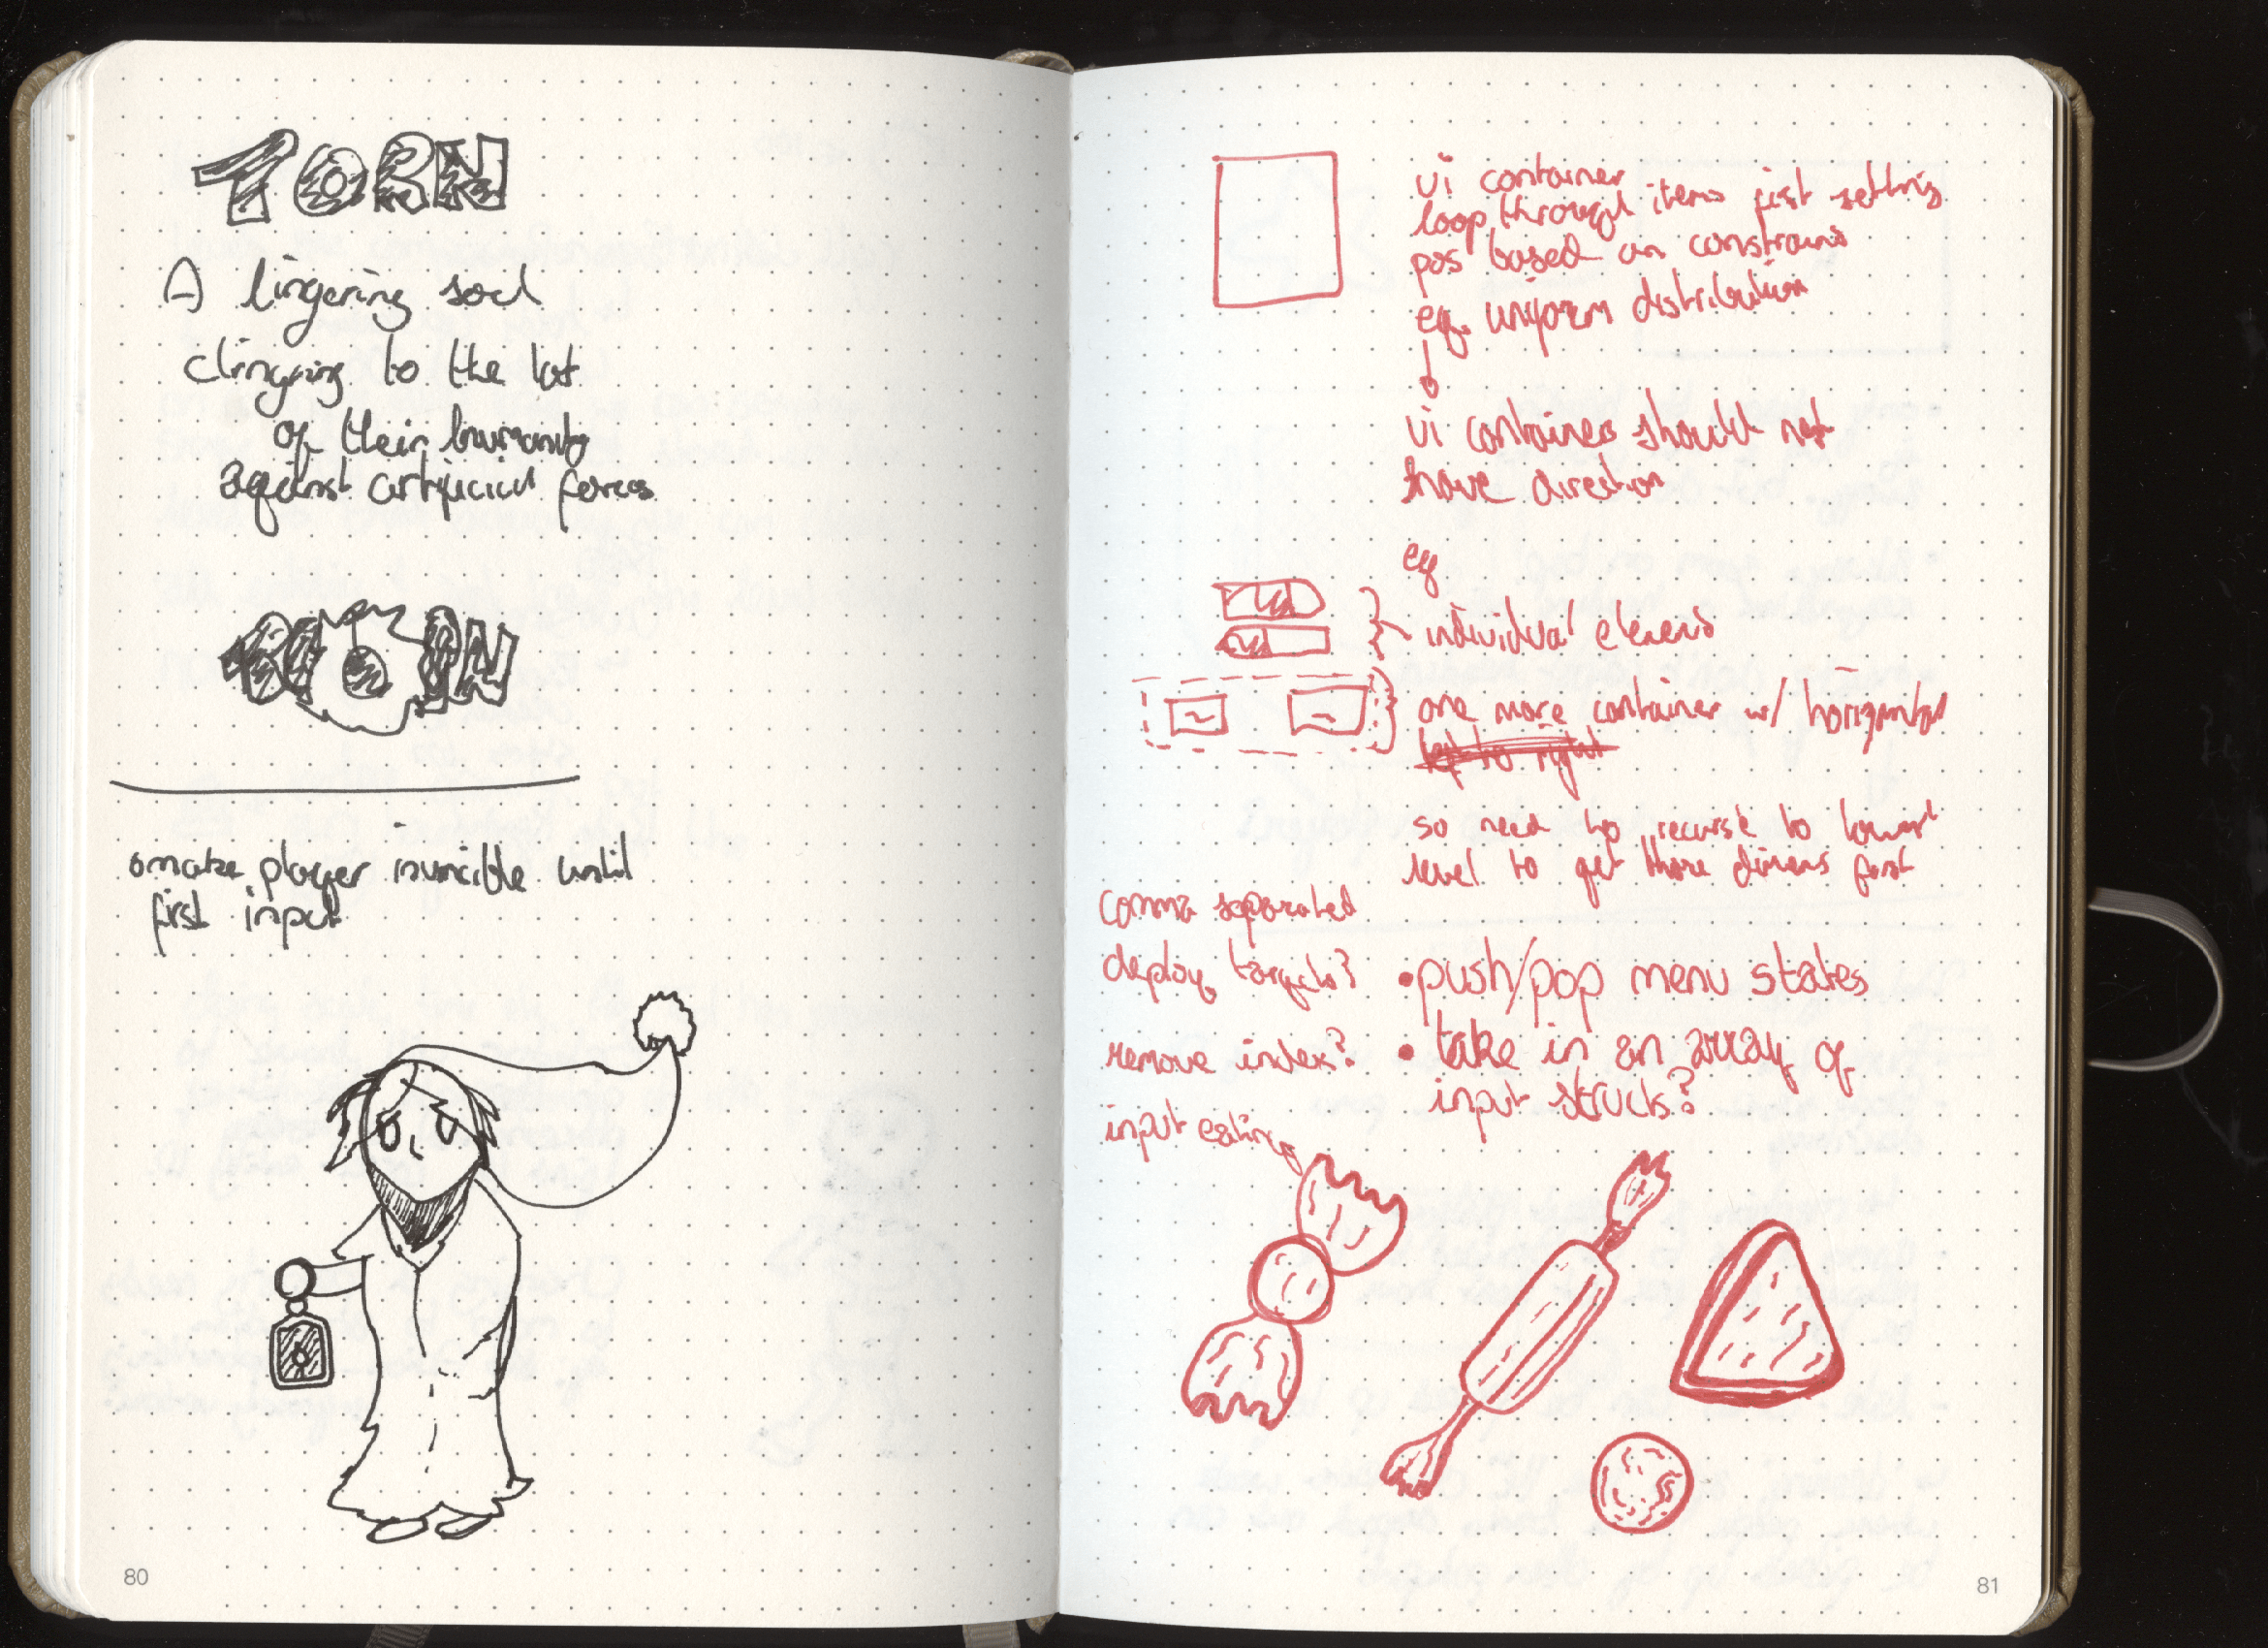 TORN
A lingering soul
clinging to the last
of their humanity
against artificial forces
TORN
make player invincible until
first input
80
ui container
loop through items first setting
pos based on constrains
eg. uniform distribution
ui containers should not
have direction
eg
individual elements
one more container w/ horizontal
left to right
so need to recurse to lowest
level to get those dimens first
comma separated
deploy targets?
remove index?
input eating
• push/pop menu states
• take in an array of
input structs?
81